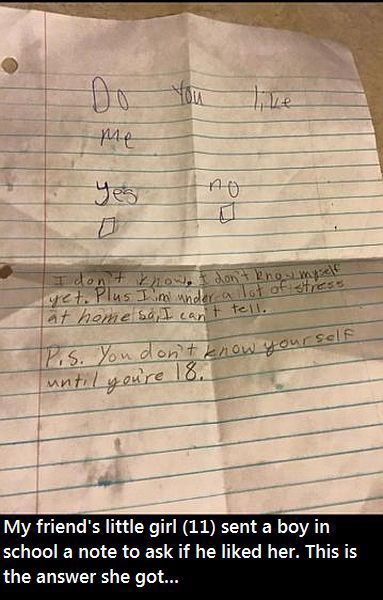 Do You like
me
yes no
I don't know. I don't know myself
yet. Plus I'm under a lot of stress
at home so, I can't tell.
P.S. You don't know yourself
until you're 18.
My friend's little girl (11) sent a boy in
school a note to ask if he liked her. This is
the answer she got...